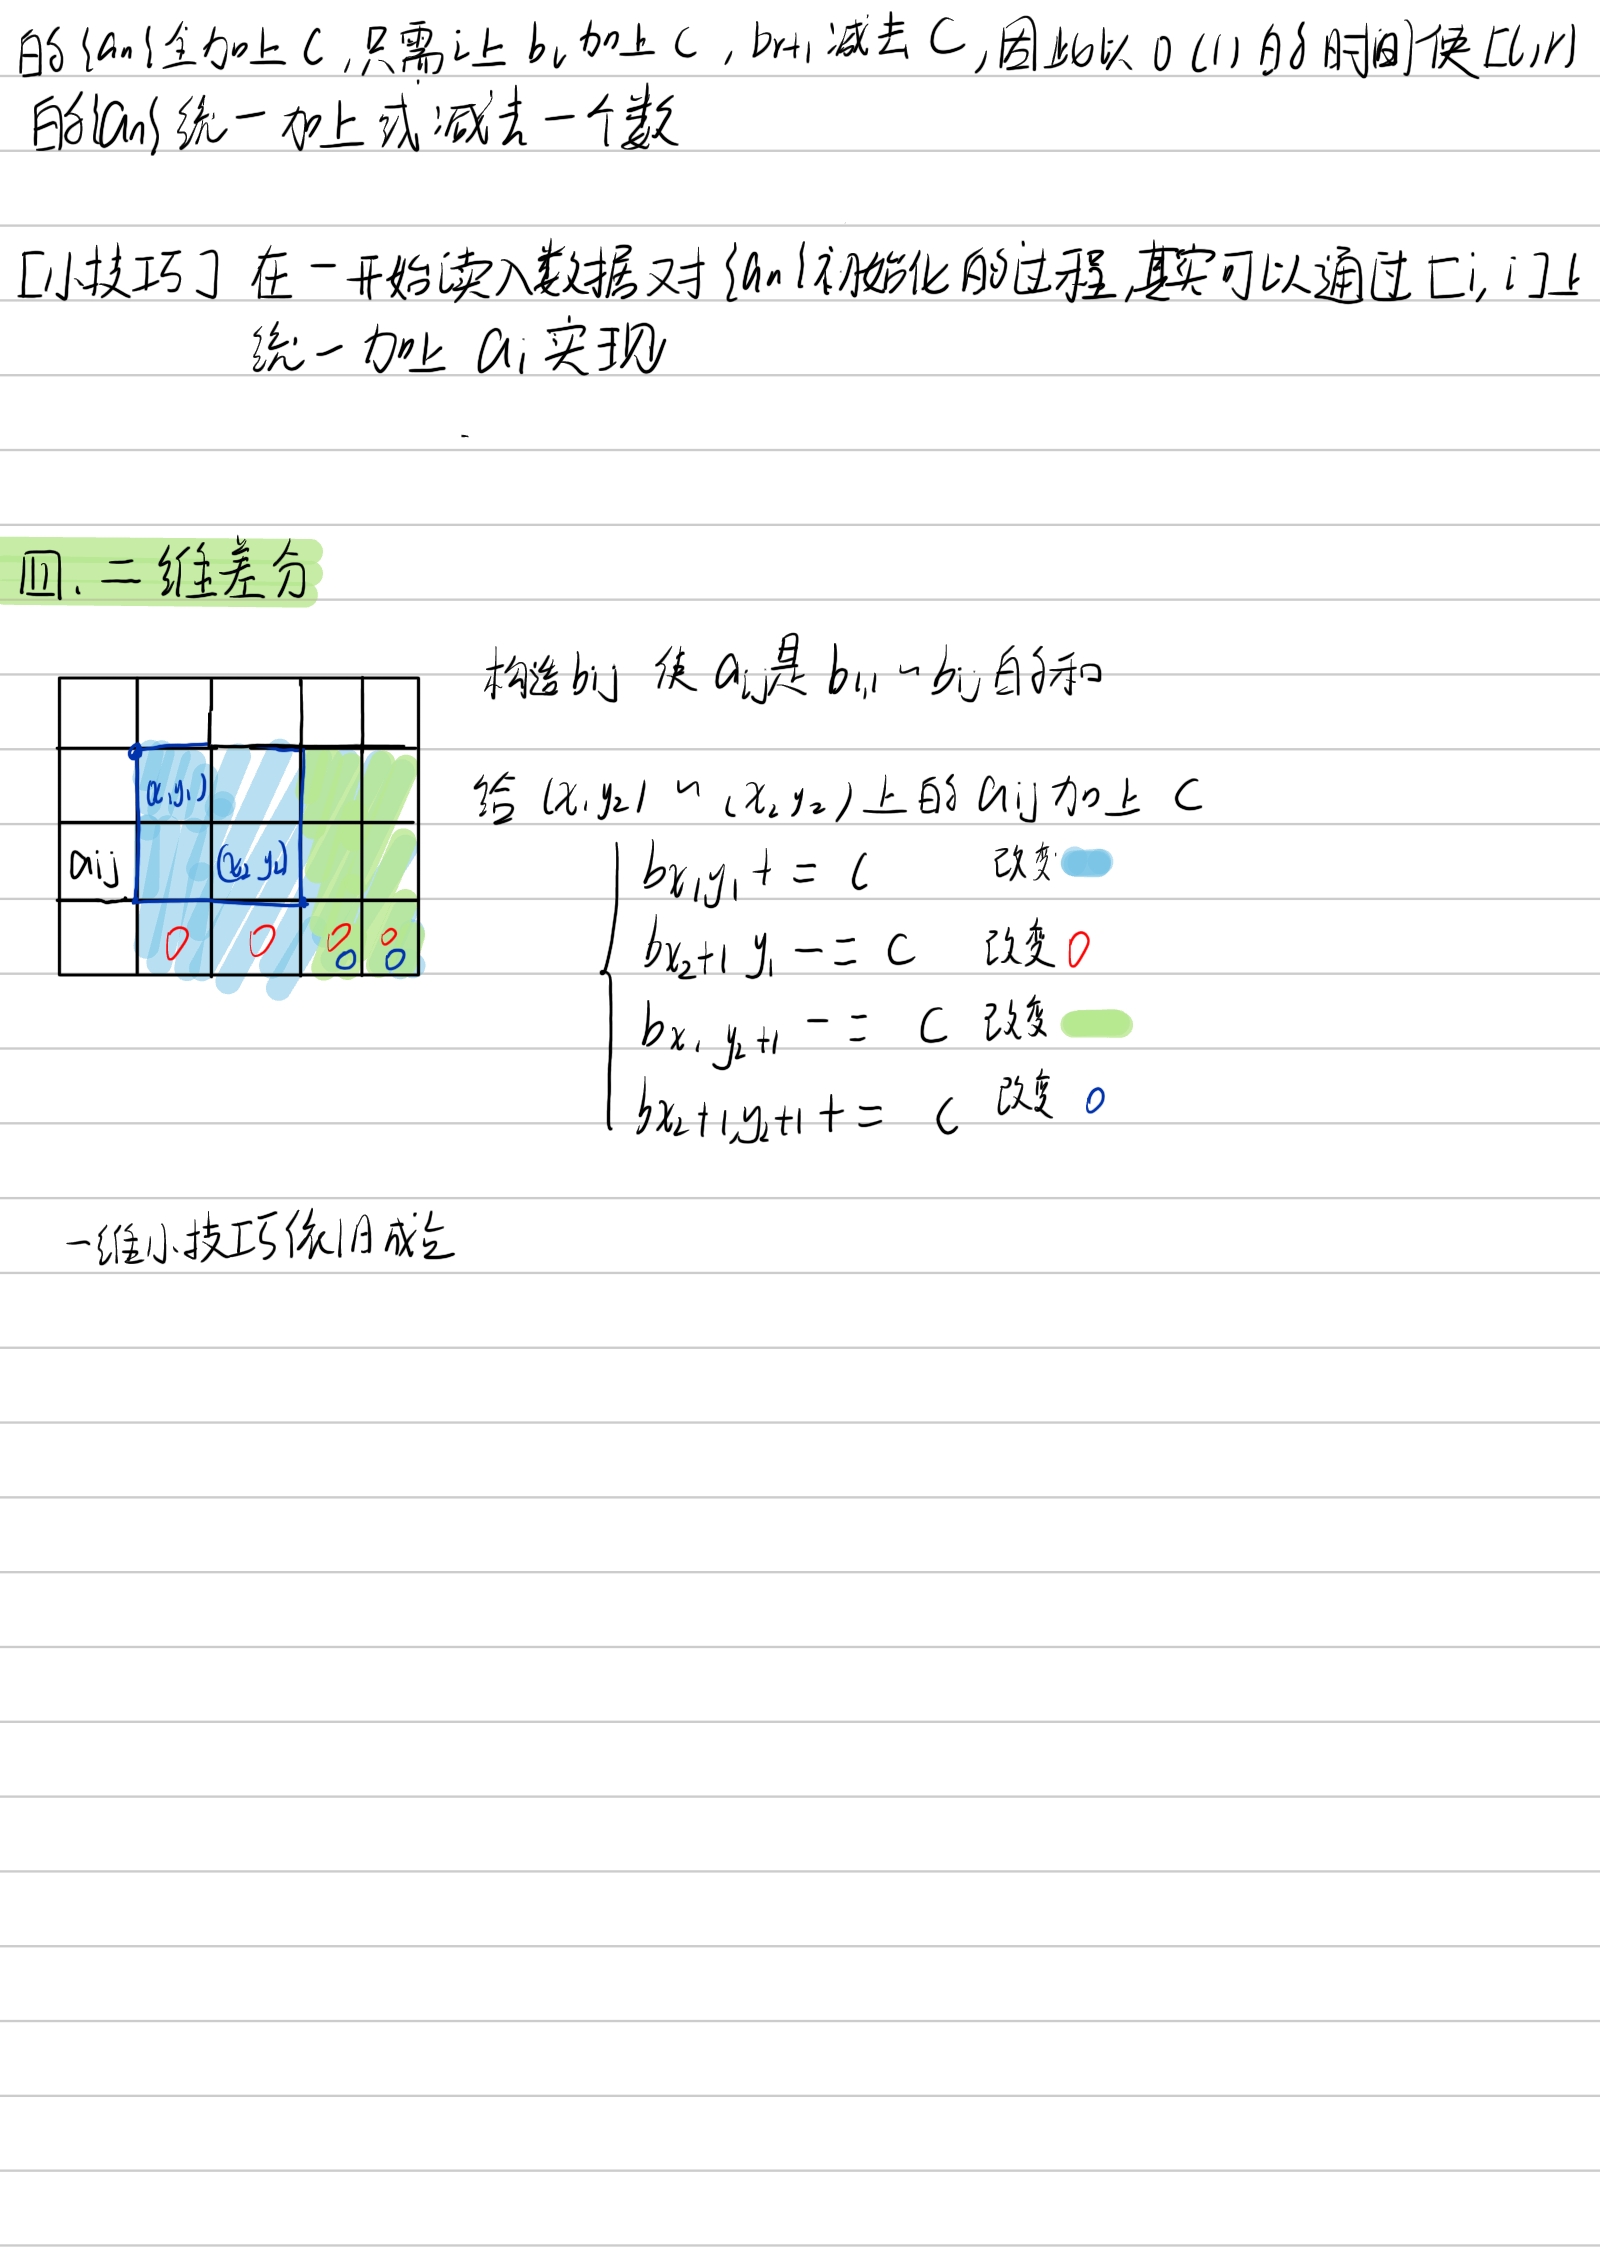 的{an}全加上C,只需让bl加上C,br+1减去C,因此以O(1)的时间使[l,r]
的{an}统一加上或减去一个数
[小技巧] 在一开始读入数据对{an}初始化的过程,其实可以通过[i,i]上
统一加上ai实现
四.二维差分
构造bij 使aij是b1,1~bij的和
给(x1y2)~(x2y2)上的aij加上C
(x1y1)
aij
(x2y2)
bx1y1+=C 改变
bx2+1y1-=C 改变O
bx1y2+1-=C 改变
bx2+1,y2+1+=C 改变O
一维小技巧依旧成立